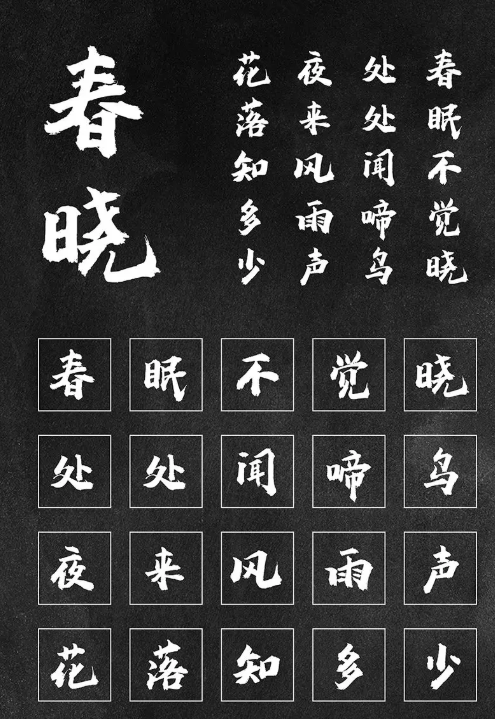 春晓
春眠不觉晓
处处闻啼鸟
夜来风雨声
花落知多少
春眠不觉晓
处处闻啼鸟
夜来风雨声
花落知多少